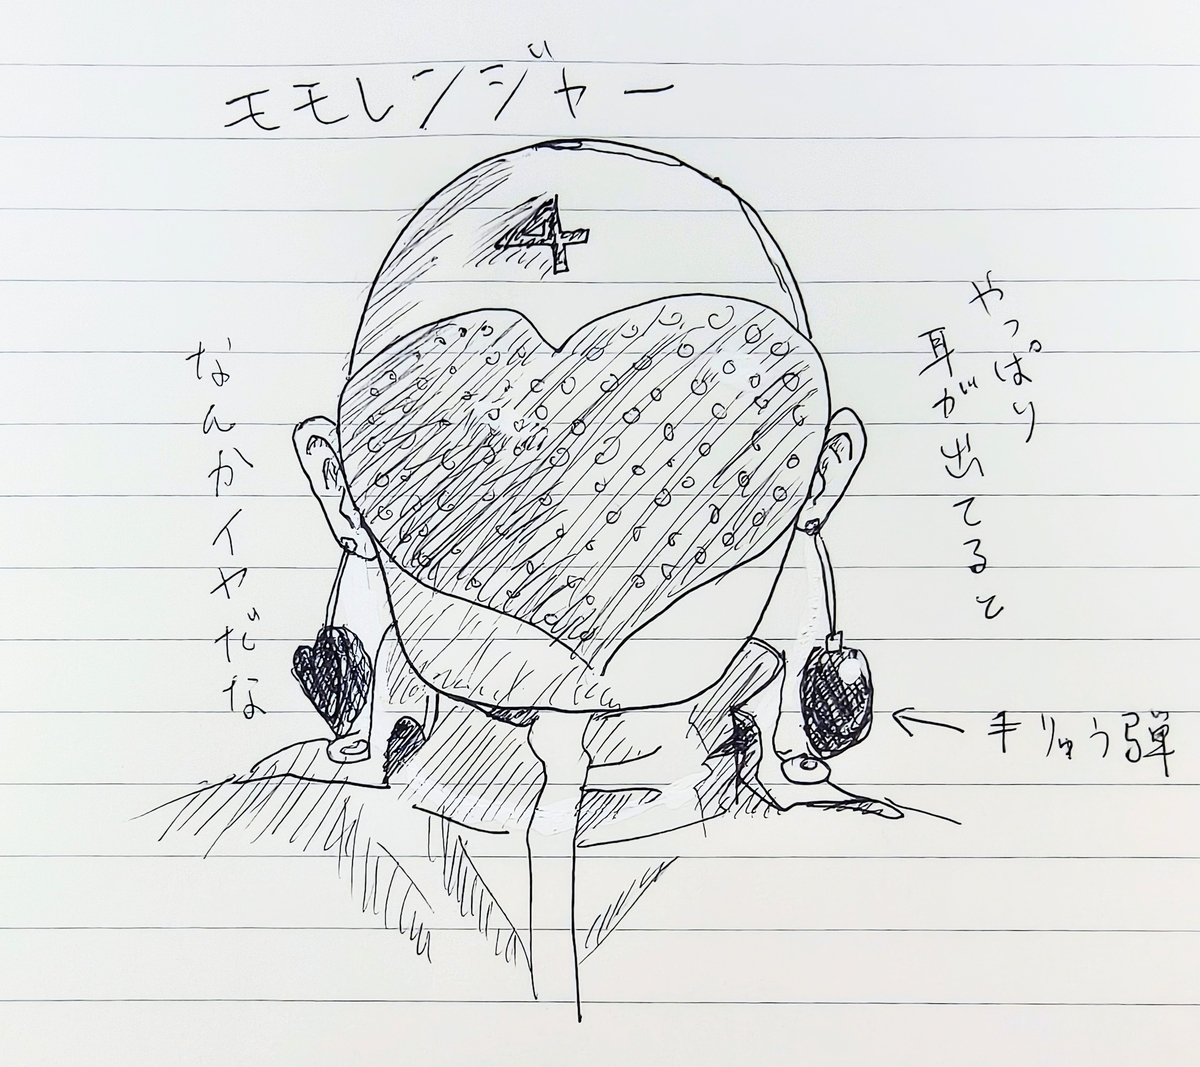 モモレンジャー
4
やっぱり
耳が出てると
なんかイヤだな
←手りゅう弾